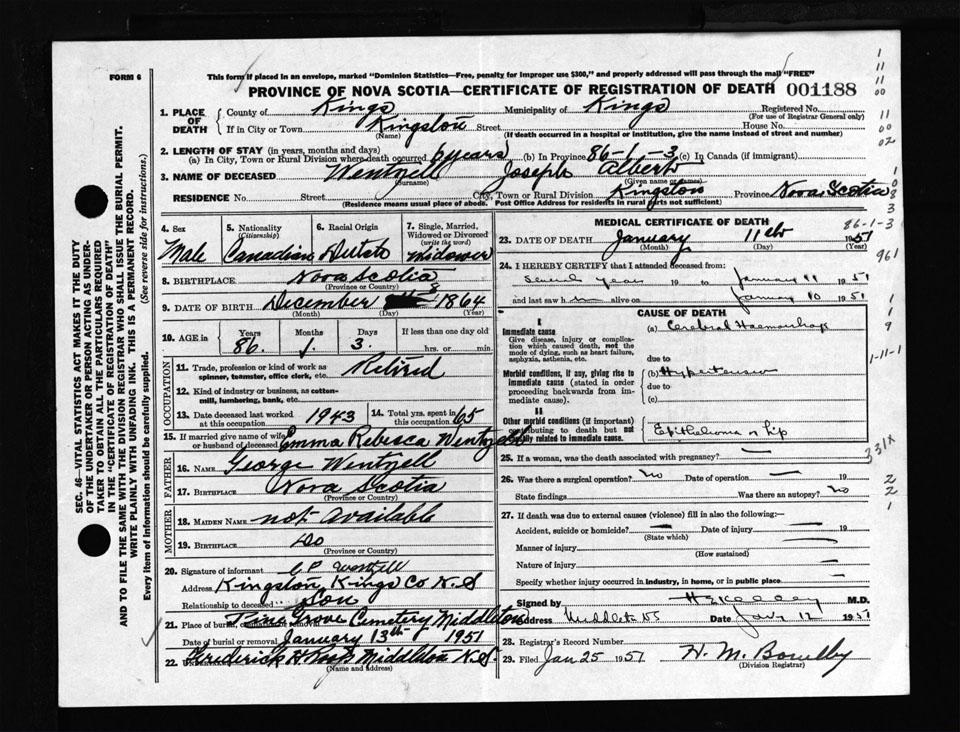 FORM 6
This form if placed in an envelope, marked "Dominion Statistics—Free, penalty for improper use $300," and properly addressed will pass through the mail "FREE"
PROVINCE OF NOVA SCOTIA—CERTIFICATE OF REGISTRATION OF DEATH 001188
1. PLACE OF DEATH County of Kings Municipality of Kings Registered No.
(For use of Registrar General only)
If in City or Town Kingston Street House No.
(Name) (If death occurred in a hospital or institution, give the name instead of street and number)
2. LENGTH OF STAY (in years, months and days)
(a) In City, Town or Rural Division where death occurred 6 years (b) In Province 86-1-3 (c) In Canada (if immigrant)
3. NAME OF DECEASED Wentzell Joseph Albert
(Surname) (Given name or names)
RESIDENCE No. Street City, Town or Rural Division Kingston Province Nova Scotia
(Residence means usual place of abode. Post Office Address for residents in rural parts not sufficient)
4. Sex Male
5. Nationality (Citizenship) Canadian
6. Racial Origin Dutch
7. Single, Married, Widowed or Divorced (write the word) Widower
8. BIRTHPLACE Nova Scotia
(Province or Country)
9. DATE OF BIRTH December 8 1864
(Month) (Day) (Year)
10. AGE in Years Months Days If less than one day old
86. 1. 3. hrs. or min.
OCCUPATION
11. Trade, profession or kind of work as spinner, teamster, office clerk, etc. Retired
12. Kind of industry or business, as cotton-mill, lumbering, bank, etc.
13. Date deceased last worked at this occupation 1943
14. Total yrs. spent in this occupation 65
15. If married give name of wife or husband of deceased Emma Rebecca Wentzell
FATHER
16. NAME George Wentzell
17. BIRTHPLACE Nova Scotia
(Province or Country)
MOTHER
18. MAIDEN NAME not available
19. BIRTHPLACE do
(Province or Country)
20. Signature of informant C P Wentzell
Address Kingston, Kings Co N.S
Relationship to deceased Son
21. Place of burial, cremation or removal Pine Grove Cemetery Middleton
Date of burial or removal January 13th 1951
22. Undertaker Frederick H Roop Middleton N.S.
(Name and Address)
MEDICAL CERTIFICATE OF DEATH
86-1-3
23. DATE OF DEATH January 11th 1951
(Month) (Day) (Year)
24. I HEREBY CERTIFY that I attended deceased from:
Several years 19 to January 11 1951
and last saw h im alive on January 10 1951
CAUSE OF DEATH
I
Immediate cause
Give disease, injury or complication which caused death, not the mode of dying, such as heart failure, asphyxia, asthenia, etc.
(a) Cerebral Haemorrhage
due to
Morbid conditions, if any, giving rise to immediate cause (stated in order proceeding backwards from immediate cause).
(b) Hypertension
due to
(c)
II
Other morbid conditions (if important) contributing to death but not causally related to immediate cause.
Epithelioma of lip
25. If a woman, was the death associated with pregnancy? —
26. Was there a surgical operation? No Date of operation — 19
State findings Was there an autopsy? No
27. If death was due to external causes (violence) fill in also the following:—
Accident, suicide or homicide? — Date of injury — 19
(State which)
Manner of injury —
(How sustained)
Nature of injury —
Specify whether injury occurred in industry, in home, or in public place —
Signed by M.D.
Address Middleton NS Date Jan 12 1951
28. Registrar's Record Number
29. Filed Jan 25 1951
(Division Registrar)
961
1-11-1
331X
SEC. 46—VITAL STATISTICS ACT MAKES IT THE DUTY
OF THE UNDERTAKER OR PERSON ACTING AS UNDER-
TAKER TO OBTAIN ALL THE PARTICULARS REQUIRED
IN THE "CERTIFICATE OF REGISTRATION OF DEATH"
AND TO FILE THE SAME WITH THE DIVISION REGISTRAR WHO SHALL ISSUE THE BURIAL PERMIT.
WRITE PLAINLY WITH UNFADING INK. THIS IS A PERMANENT RECORD.
Every item of information should be carefully supplied. (See reverse side for instructions.)